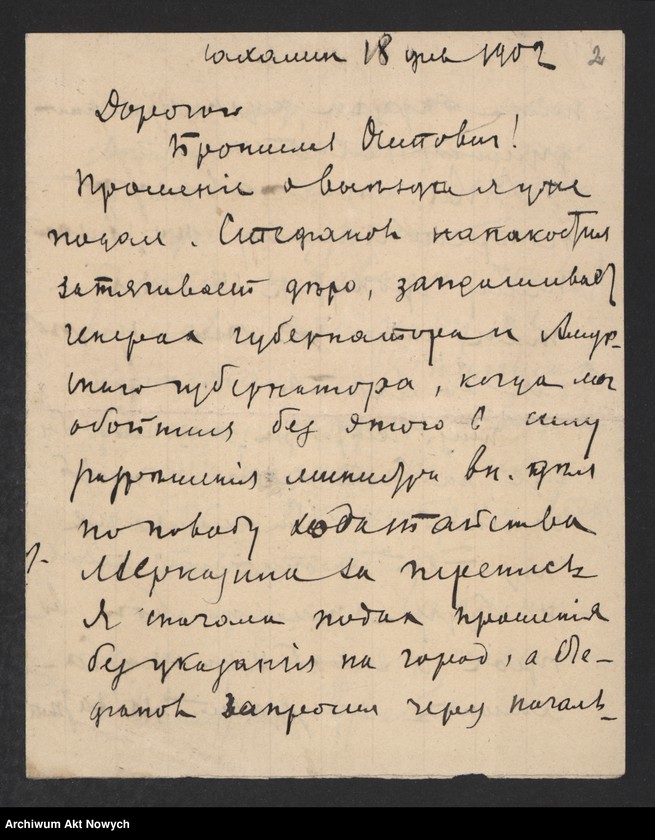 Сахалин 18 фев 1902
2
Дорогой
Бронислав Осипович!
Прошеніе о выѣзде я уже
подал. Стефанов напакостил
затягивает дѣло, запрашивает
генерал губернатора и Амур-
скаго губернатора, когда мог
обойтися без этого в силу
разрѣшенія министра вн. дѣл
по поводу ходатайства
Мерказина за перепись
Я сначала подал прошенія
без указанія на город, а Сте-
фанов запросил через началь-
Archiwum Akt Nowych